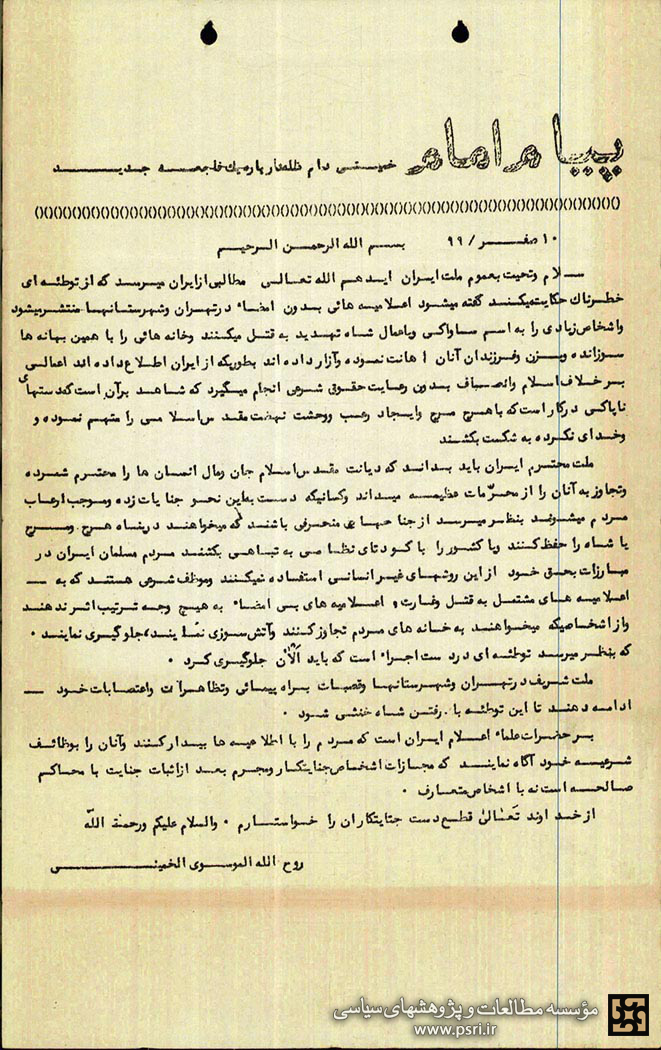 پیام امام خمینی دام ظله درباره یک فاجعه جدید
۱۰ صفر / ۹۹ بسم الله الرحمن الرحیم
سلام وتحیت بعموم ملت ایران ایدهم الله تعالی مطالبی از ایران میرسد که از توطئه ای
خطرناک حکایت میکنند گفته میشود اعلامیه هائی بدون امضاء در تهران وشهرستانها منتشر میشود
واشخاص زیادی را به اسم ساواکی وباعمال شاه تهدید به قتل میکنند وخانه هائی را با همین بهانه ها
سوزانده وبزن وفرزندان آنان اهانت نموده وآزار داده اند بطوریکه از ایران اطلاع داده اند اعمالی
بر خلاف اسلام وانصاف بدون رعایت حقوق شرعی انجام میگیرد که شاهد برآن است که دستهای
ناپاکی درکار است که با هرج مرج وایجاد رعب ووحشت نهضت مقدس اسلامی را متهم نموده و
وخدای نکرده به شکست بکشند
ملت محترم ایران باید بدانند که دیانت مقدس اسلام جان ومال انسان ها را محترم شمرده
وتجاوز به آنان را از محرّمات عظیمه میداند وکسانیکه دست به این نحو جنایات زده وموجب ارعاب
مردم میشوند بنظر میرسد از جناحهای منحرفی باشند که میخواهند در پناه هرج ومرج
یا شاه را حفظ کنند ویا کشور را با کودتای نظامی به تباهی بکشند مردم مسلمان ایران در
مبارزات بحق خود از این روشهای غیر انسانی استفاده نمیکنند وموظف شرعی هستند که به —
اعلامیه های مشتمل به قتل وغارت و اعلامیه های بی امضاء به هیچ وجه ترتیب اثر ندهند
واز اشخاصیکه میخواهند به خانه های مردم تجاوز کنند وآتش سوزی نمایند، جلوگیری نمایند .
که بنظر میرسد توطئه ای در دست اجراء است که باید الآن جلوگیری کرد .
ملت شریف در تهران وشهرستانها وقصبات براه پیمائی وتظاهرات واعتصابات خود —
ادامه دهند تا این توطئه با رفتن شاه خنثی شود .
بر حضرات علماء اعلام ایران است که مردم را با اطلاعیه ها بیدار کنند وآنان را بوظائف
شرعیه خود آگاه نمایند که مجازات اشخاص جنایتکار ومجرم بعد از اثبات جنایت با محاکم
صالحه است نه با اشخاص متعارف .
از خداوند تعالی قطع دست جنایتکاران را خواستارم . والسلام علیکم ورحمة الله
روح الله الموسوی الخمینی
مؤسسه مطالعات و پژوهشهای سیاسی
www.psri.ir